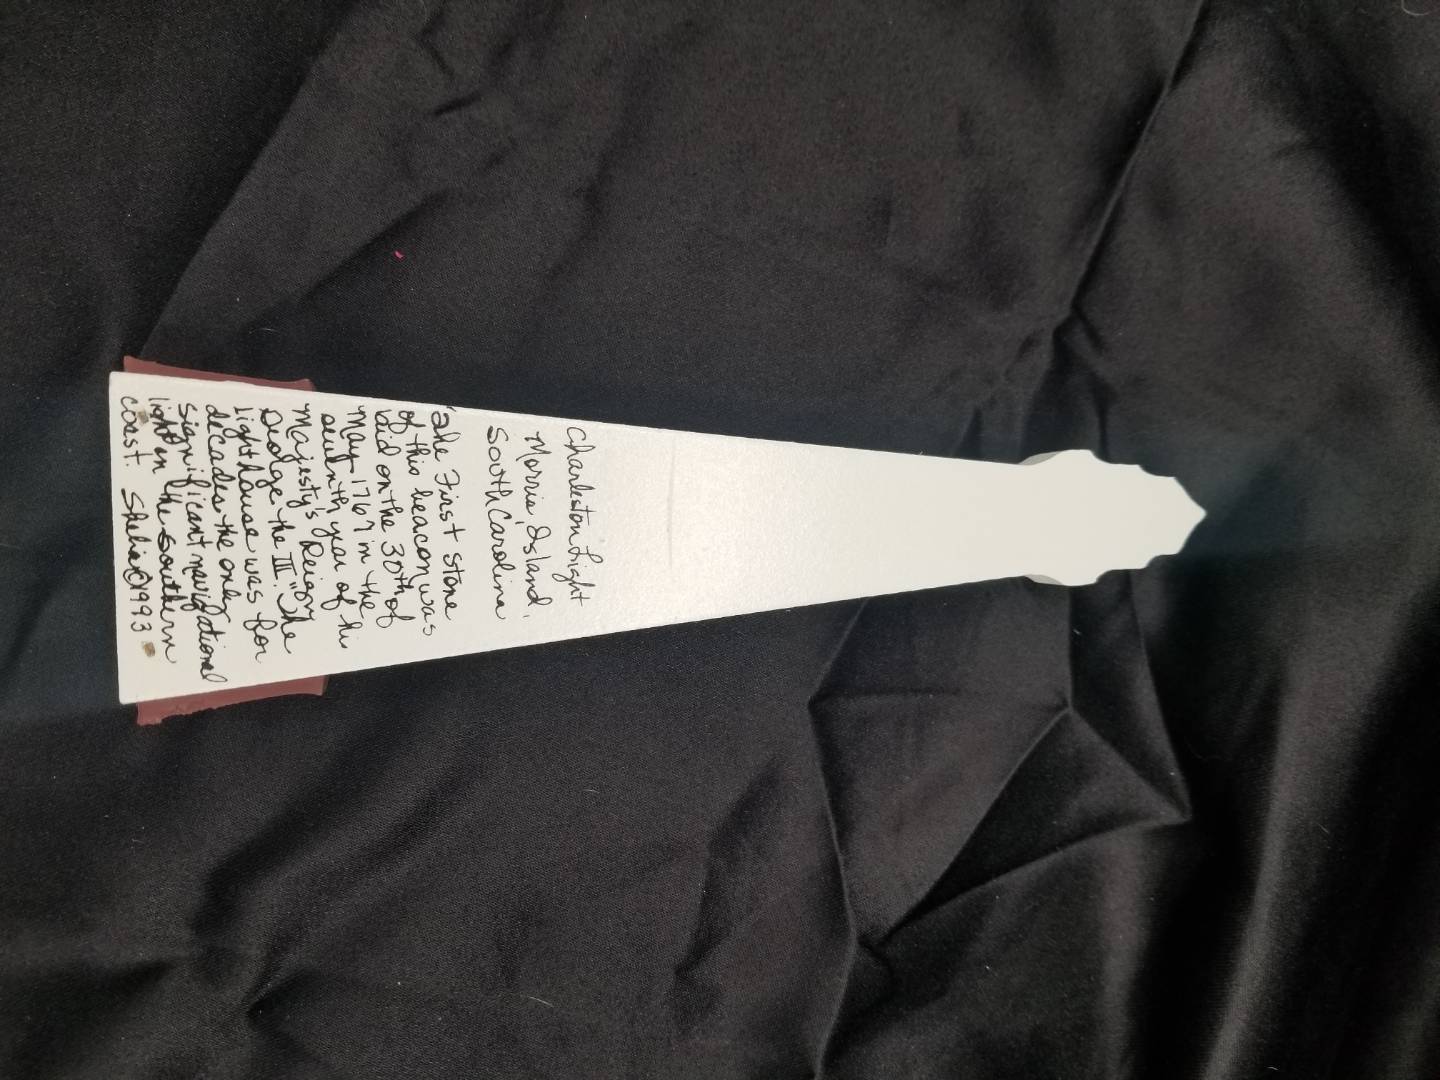 Charleston Light
Morris Island,
South Carolina
"The First stone
of this beacon was
laid on the 30th of
May 1767 in the
seventh year of his
Majesty's Reign,
George the III." The
lighthouse was for
decades the only
significant navigational
light on the southern
coast. Shelia©1993